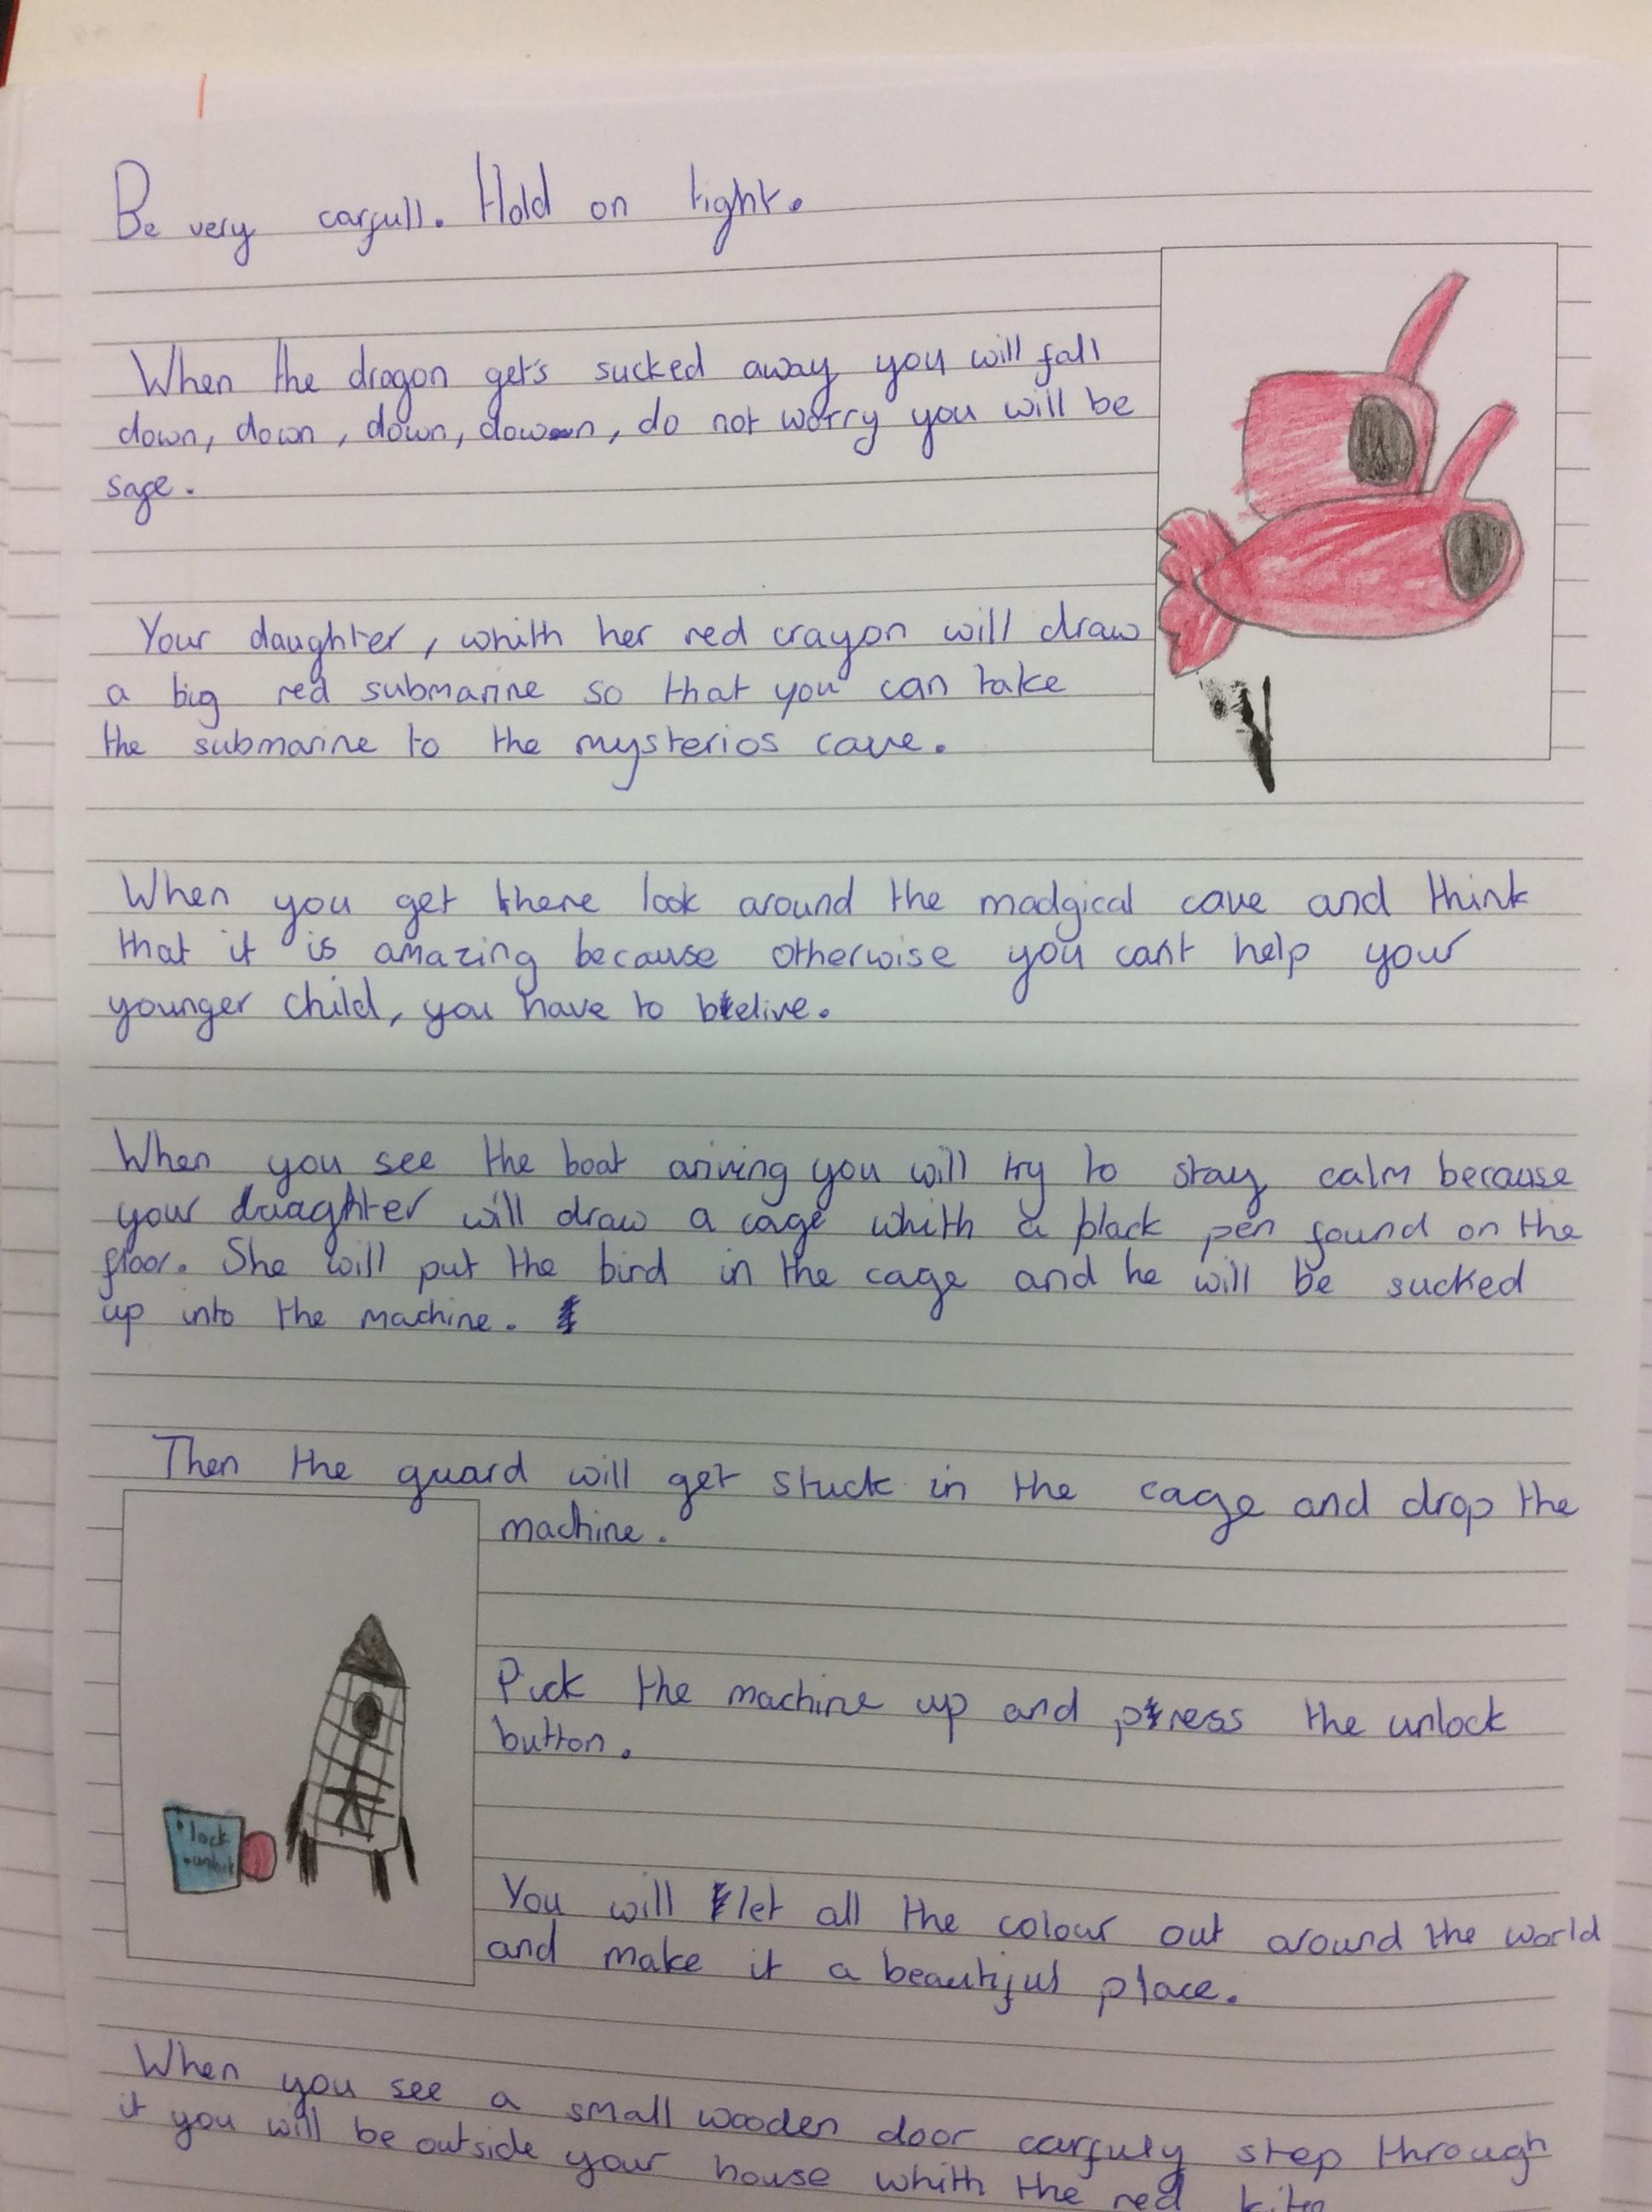 Be very carfull. Hold on tight.
When the dragon get's sucked away you will fall
down, down, down, down, do not worry you will be
safe.
Your daughter, whith her red crayon will draw
a big red submarine so that you can take
the submarine to the mysterios cave.
When you get there look around the madgical cave and think
that it is amazing because otherwise you can't help your
younger child, you have to belive.
When you see the boat ariving you will try to stay calm because
your daughter will draw a cage whith a black pen found on the
floor. She will put the bird in the cage and he will be sucked
up into the machine.
Then the guard will get stuck in the cage and drop the
machine.
Pick the machine up and press the unlock
button.
• lock
• unlock
You will let all the colour out around the world
and make it a beautiful place.
When you see a small wooden door carfuly step through
it you will be outside your house whith the red